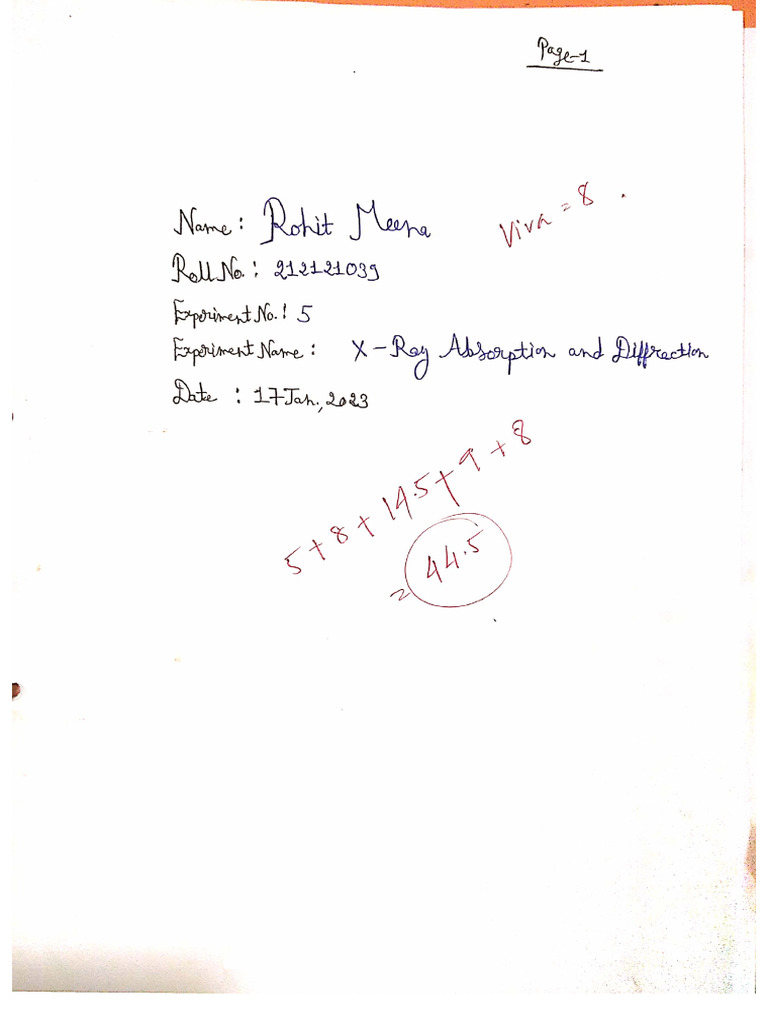 Page-1
Viva = 8 .
Name: Rohit Meena
Roll No.: 212121039
Experiment No.: 5
Experiment Name: X-Ray Absorption and Diffraction
Date: 17 Jan., 2023
5+8+14.5+9+8
= 44.5